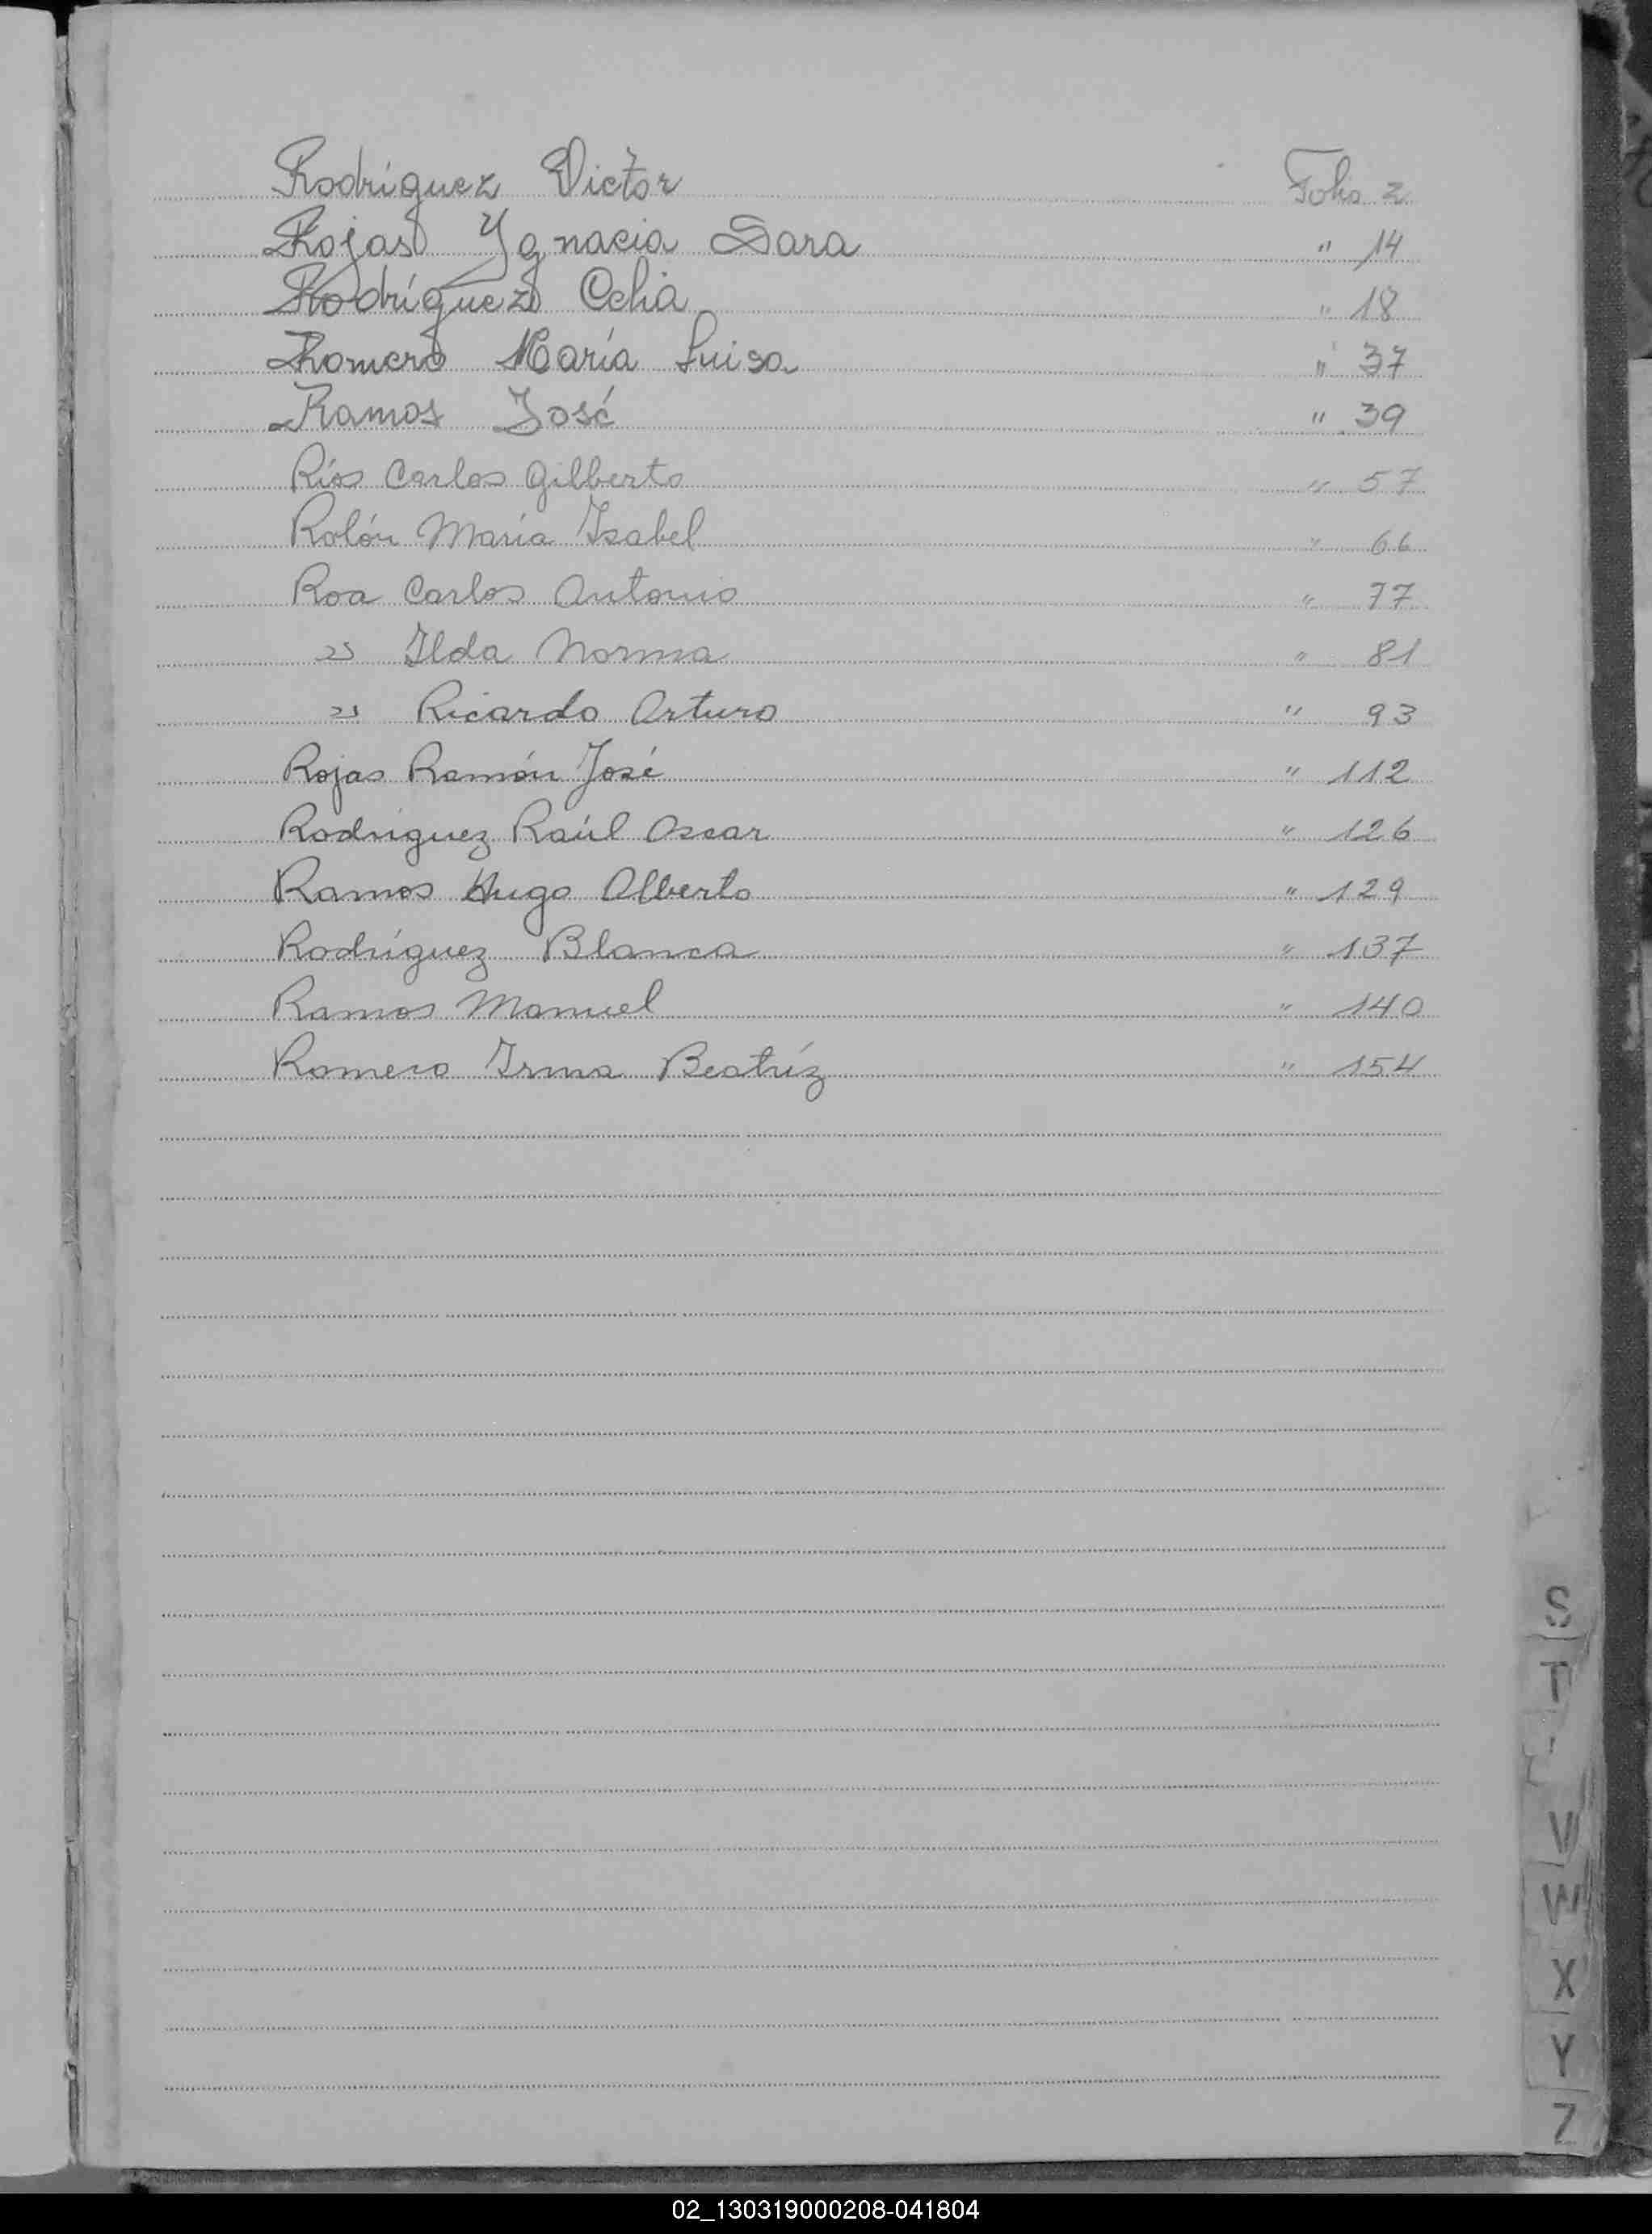 Rodríguez Victor Folio 2
Rojas Ygnacia Sara " 14
Rodríguez Celia " 18
Romero María Luisa " 37
Ramos José " 39
Ríos Carlos Gilberto " 57
Rolón María Isabel " 66
Roa Carlos Antonio " 77
" Ilda Norma " 81
" Ricardo Arturo " 93
Rojas Ramón José " 112
Rodriguez Raúl Oscar " 126
Ramos Hugo Alberto " 129
Rodríguez Blanca " 137
Ramos Manuel " 140
Romero Irma Beatríz " 154
S
T
V
W
X
Y
Z
02_130319000208-041804